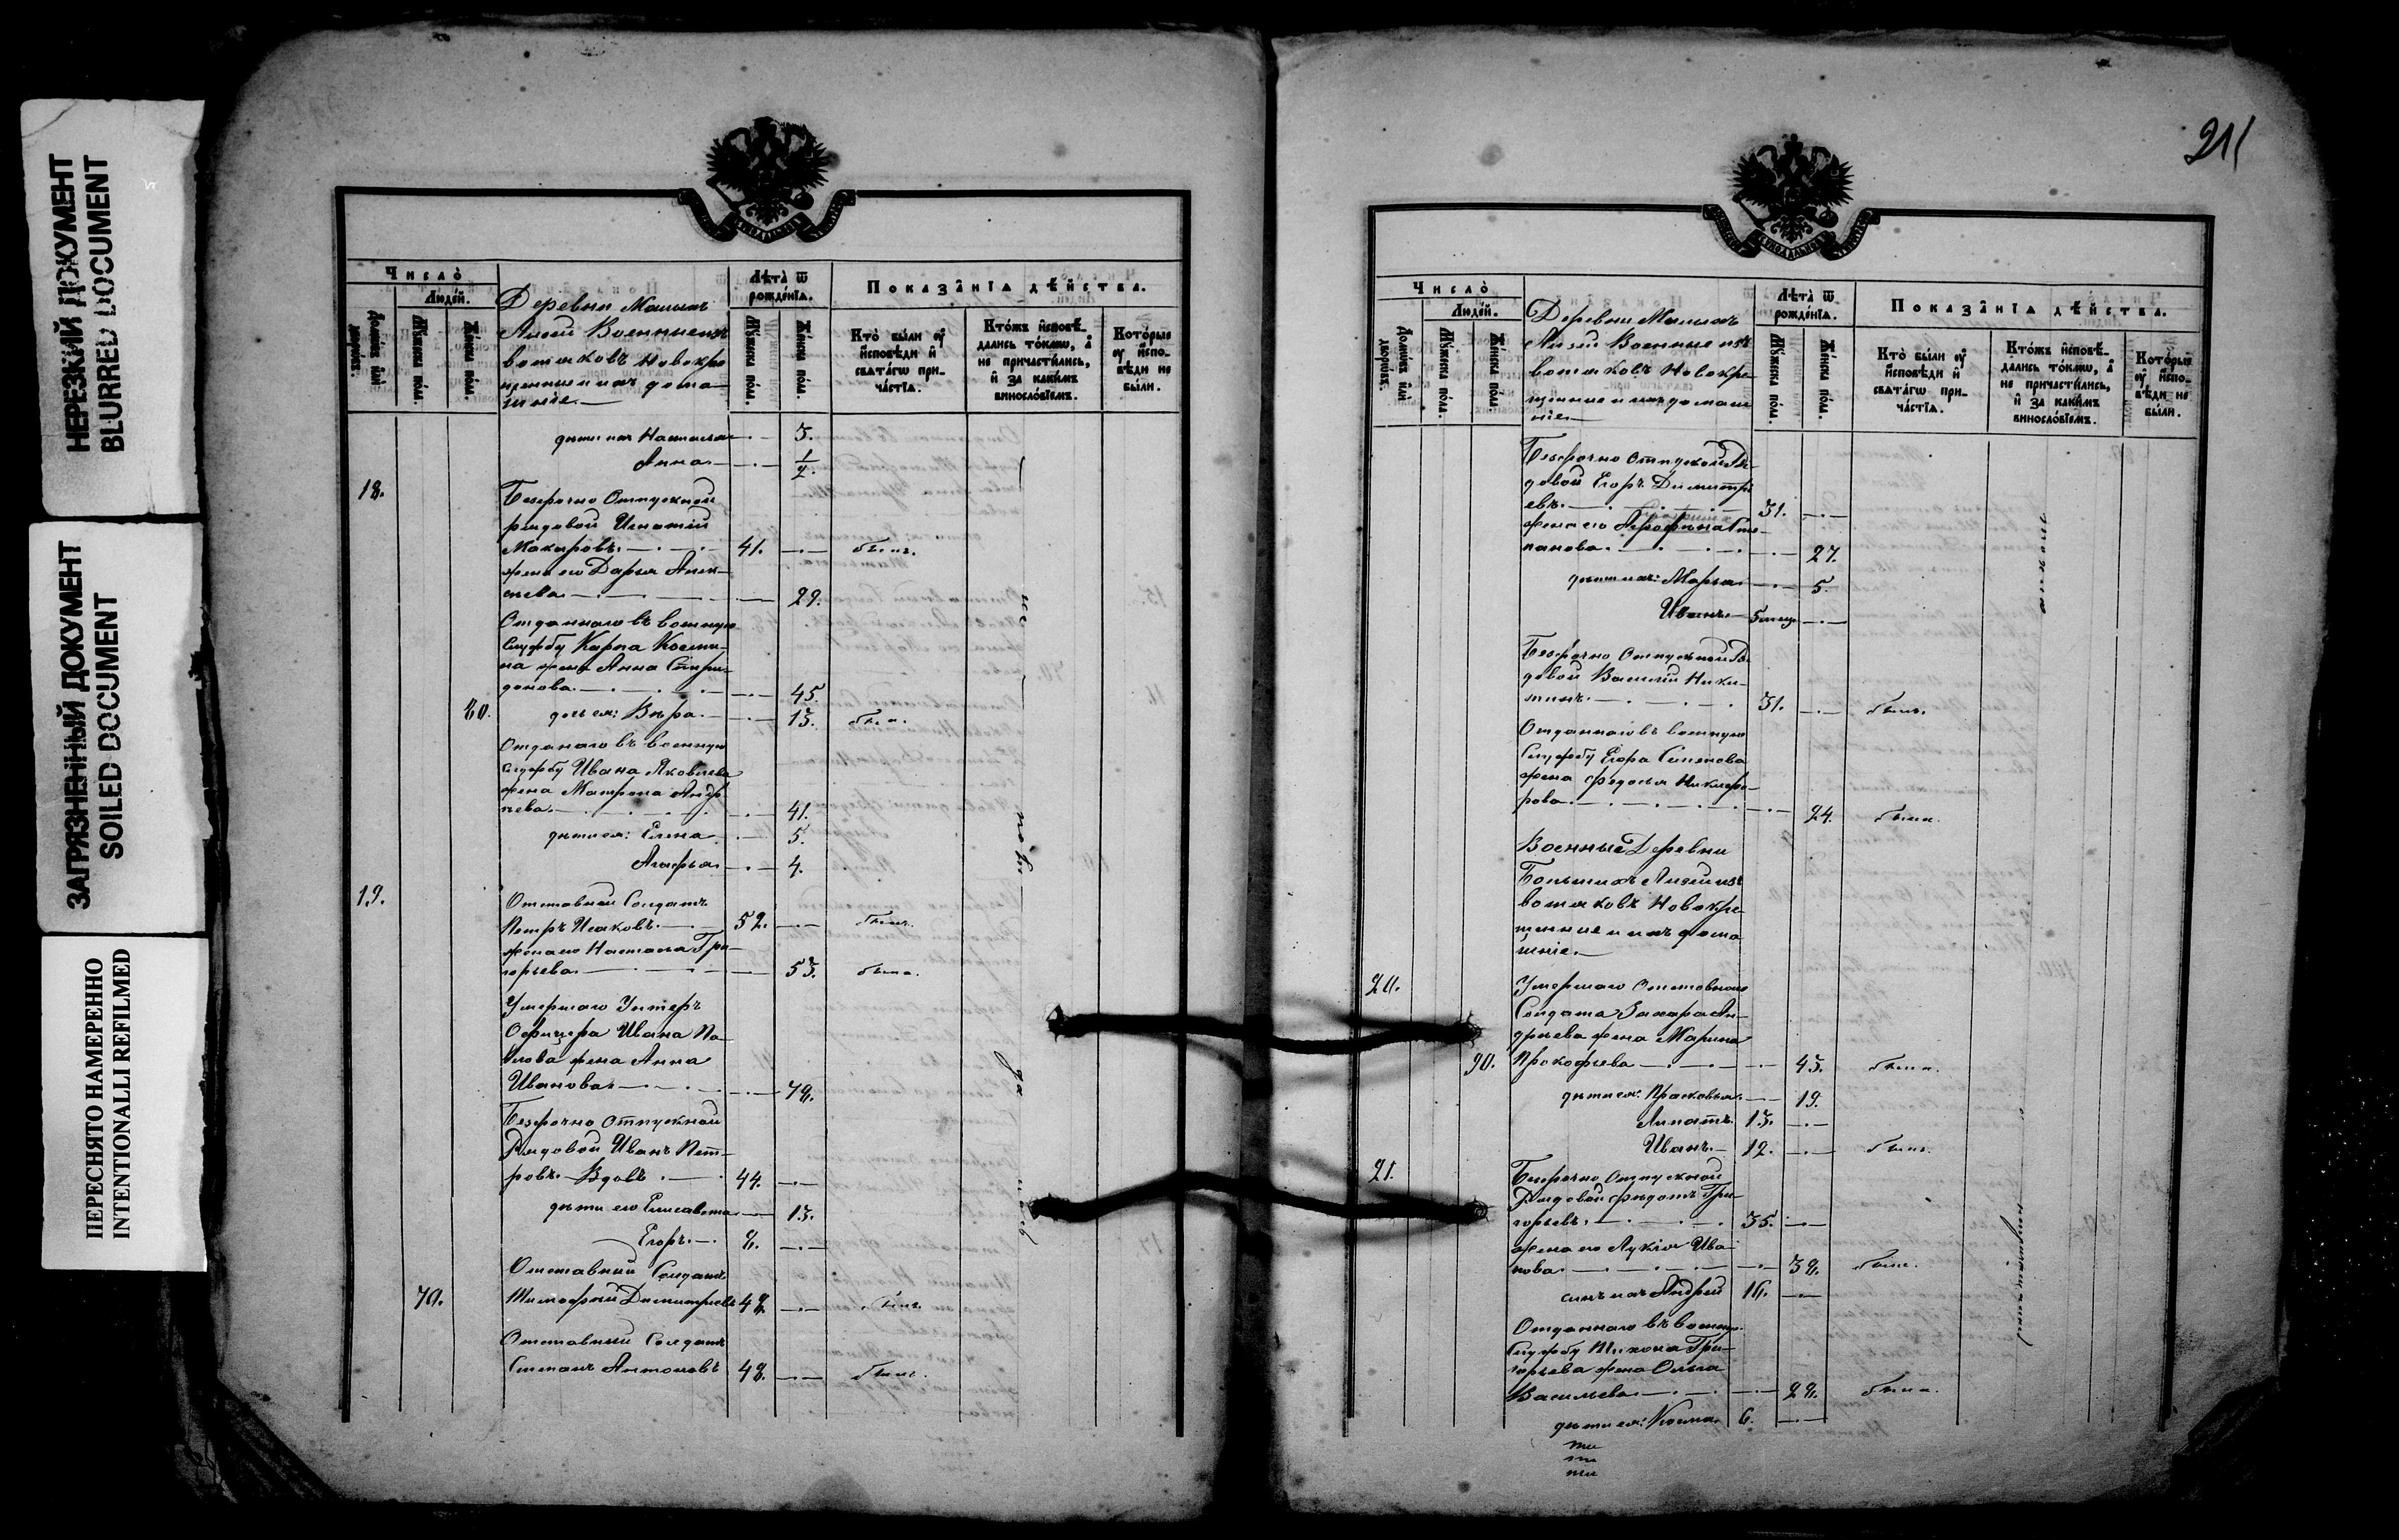 НЕРЕЗКИЙ ДОКУМЕНТ
BLURRED DOCUMENT
ЗАГРЯЗНЕННЫЙ ДОКУМЕНТ
SOILED DOCUMENT
ПЕРЕСНЯТО НАМЕРЕННО
INTENTIONALLI REFILMED
Число̀
Людей.
Домѡвъ или дворовъ.
Мужеска полу.
Женска полу.
Деревни Малыхъ
Военные изъ
вотяковъ новокре
щенные и ихъ дома
шніе.
Лѣта ѿ рожденїѧ.
Мужеска полу.
Женска полу.
Показанїѧ дѣйства.
Кто были ѹ
исповѣди и
свѧтагѡ при-
частїѧ.
Ктожъ исповѣ-
дались токмѡ, а
не причастились,
и за какимъ
винословїемъ.
Которые
ѹ испо-
вѣди не
были.
дѣти ихъ Настасья 3.
Анна 1/2.
18. Безсрочно Отпускной
рядовой Игнатій
Макаровъ. 41. былъ.
жена его Дарья
29.
Отданнаго въ военную
службу Карпа Косми-
на жена Анна Спири-
донова. 45.
80. дочь ея: Вѣра. 13. была.
Отданаго въ военную
службу Ивана Яковлева
жена Матрона Андр
еева. 41.
дѣти ея: Елена 5.
Агафья 4.
19. Отставной Солдатъ
Петръ Исаковъ. 52. былъ.
жена его Настасья Гри-
горьева. 53. была.
Умершаго Унтеръ
Офицера Ивана Па-
влова жена Анна
Иванова. 78.
Безсрочно Отпускной
Рядовой Иванъ Пет-
ровъ. Вдовъ. 44.
дѣти его Елисавета 13.
Егоръ. 8.
Отставный Солдатъ
70. Тимофей Димитріевъ 48. былъ.
Отставный Солдатъ
Степанъ Антоновъ 48. былъ.
211
Число̀
Людей.
Домѡвъ или дворовъ.
Мужеска полу.
Женска полу.
Деревни Малыхъ
Военные изъ
вотяковъ Новокре
щенные и ихъ домаш
ніе.
Лѣта ѿ рожденїѧ.
Мужеска полу.
Женска полу.
Показанїѧ дѣйства.
Кто были ѹ
исповѣди и
свѧтагѡ при-
частїѧ.
Ктожъ исповѣ-
дались токмѡ, а
не причастились,
и за какимъ
винословїемъ.
Которые
ѹ испо-
вѣди не
были.
Безсрочно Отпускной Ря-
довой Егоръ Димитрі
евъ. 31.
жена его Сте-
панова. 27.
дѣти ихъ: Марья 5.
Иванъ 5
Безсрочно Отпускной Ря-
довой Василій Ники-
тинъ. 31. былъ.
Отданнаго въ военную
Службу Егора Семенова
жена Федосья Никифо-
рова. 24. была.
Военные Деревни
Большихъ изъ
вотяковъ Новокре-
щенные и ихъ дома
шніе.
20. Умершаго отставного
Солдата Захара Ан-
дреева жена Марина
90. Прокофьева 43. была.
дѣти ея: Прасковья. 19.
Липатъ. 13.
Иванъ. 12. былъ.
21. Безсрочно Отпускной
Рядовой Федотъ Гри-
горьевъ. 35.
жена его Лукія Ива-
нова. 38. была.
сынъ ихъ Андрей 16.
Отданнаго въ военную
Службу Тихона Гри-
горьева жена Ольга
Васильева. 28. была.
дѣти ея: Косма. 6.